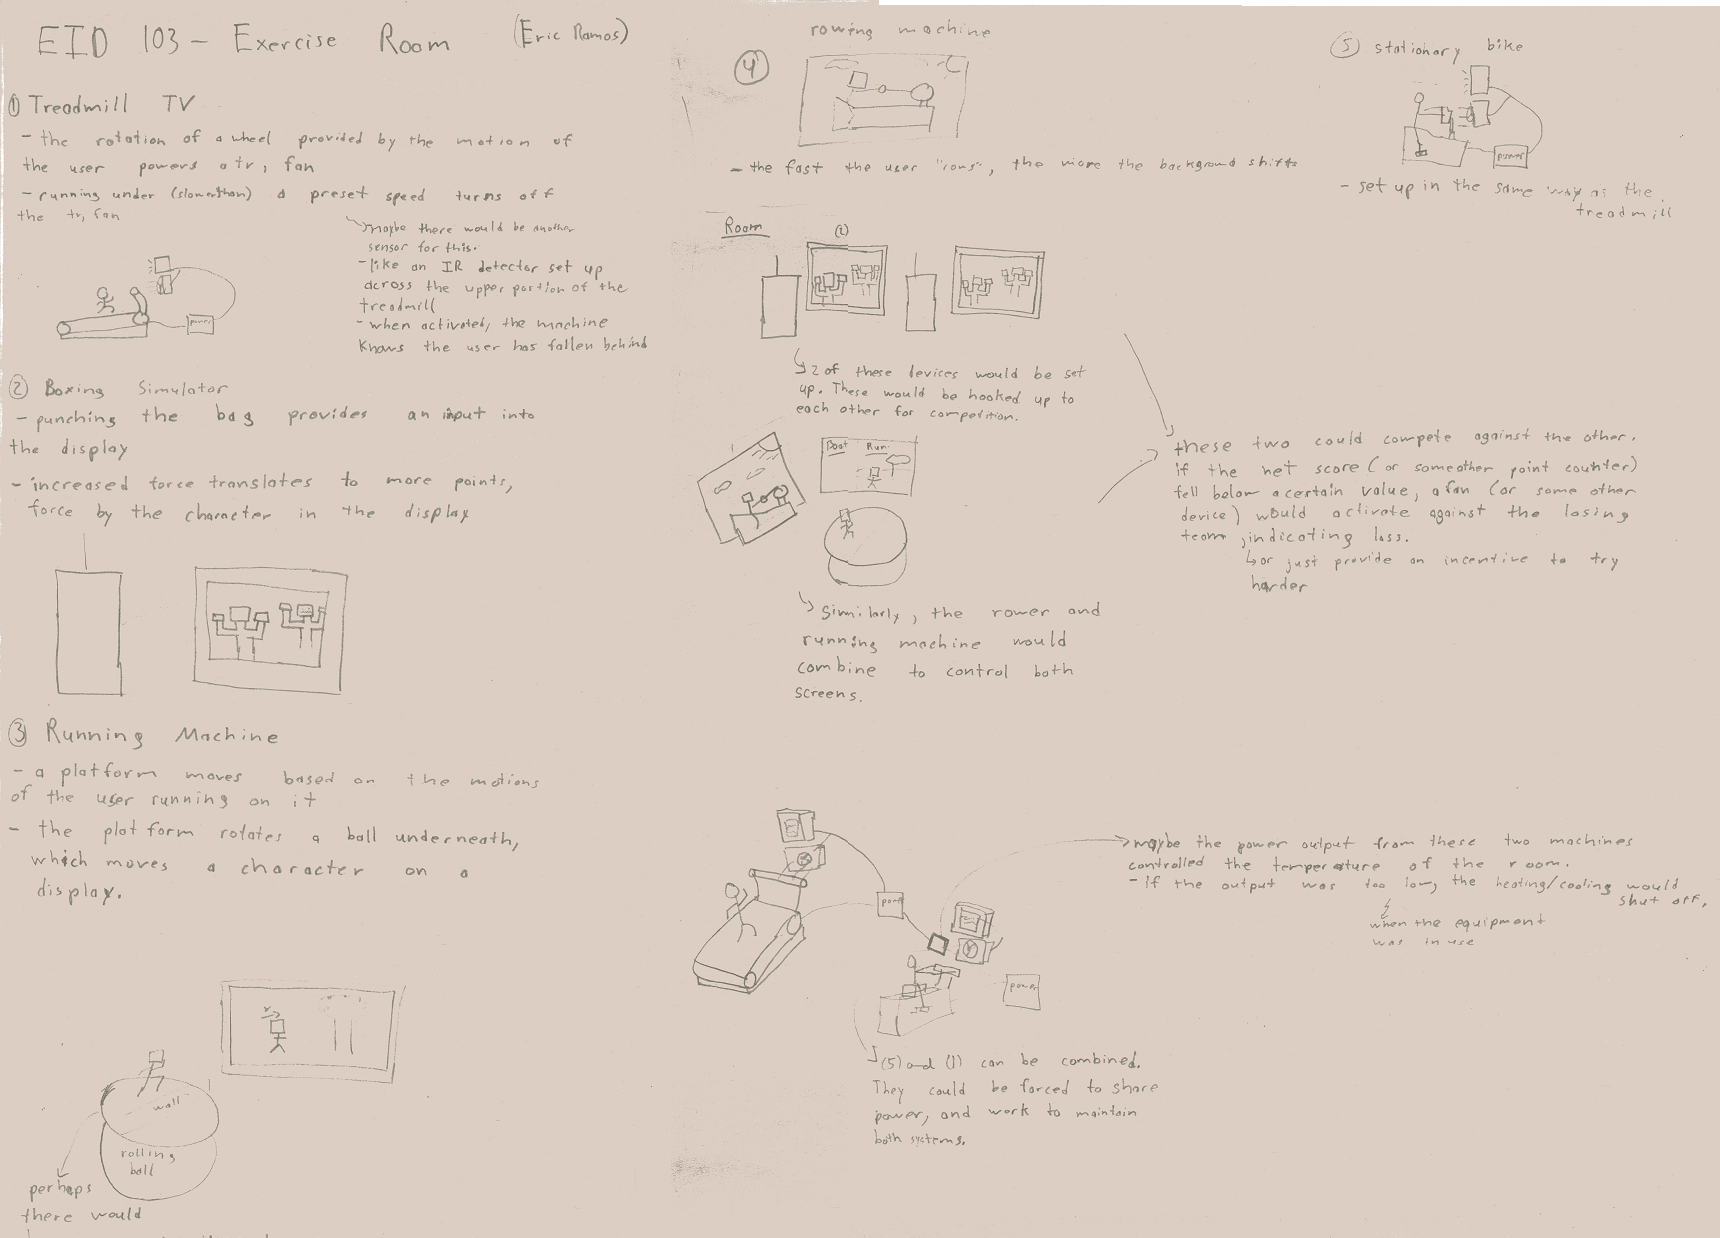 EID 103 - Exercise Room (Eric Ramos)
① Treadmill TV
- the rotation of a wheel provided by the motion of
the user powers a tv, fan
- running under (slower than) a preset speed turns off
the tv, fan
maybe there would be another
sensor for this.
- like an IR detector set up
across the upper portion of the
treadmill
- when activated, the machine
knows the user has fallen behind
power
② Boxing Simulator
- punching the bag provides an input into
the display
- increased force translates to more points,
force by the character in the display
③ Running Machine
- a platform moves based on the motions
of the user running on it
- the platform rotates a ball underneath,
which moves a character on a
display.
wall
rolling
ball
perhaps
there would
④ rowing machine
- the fast the user "rows", the more the background shifts
Room
(2)
2 of these devices would be set
up. These would be hooked up to
each other for competition.
Boat Run
Similarly, the rower and
running machine would
combine to control both
screens.
these two could compete against the other.
if the net score (or some other point counter)
fell below a certain value, a fan (or some other
device) would activate against the losing
team, indicating loss.
or just provide an incentive to try
harder
⑤ stationary bike
power
- set up in the same way as the
treadmill
power
power
maybe the power output from these two machines
controlled the temperature of the room.
- if the output was too low, the heating/cooling would
shut off,
when the equipment
was in use
(5) and (1) can be combined.
They could be forced to share
power, and work to maintain
both systems.